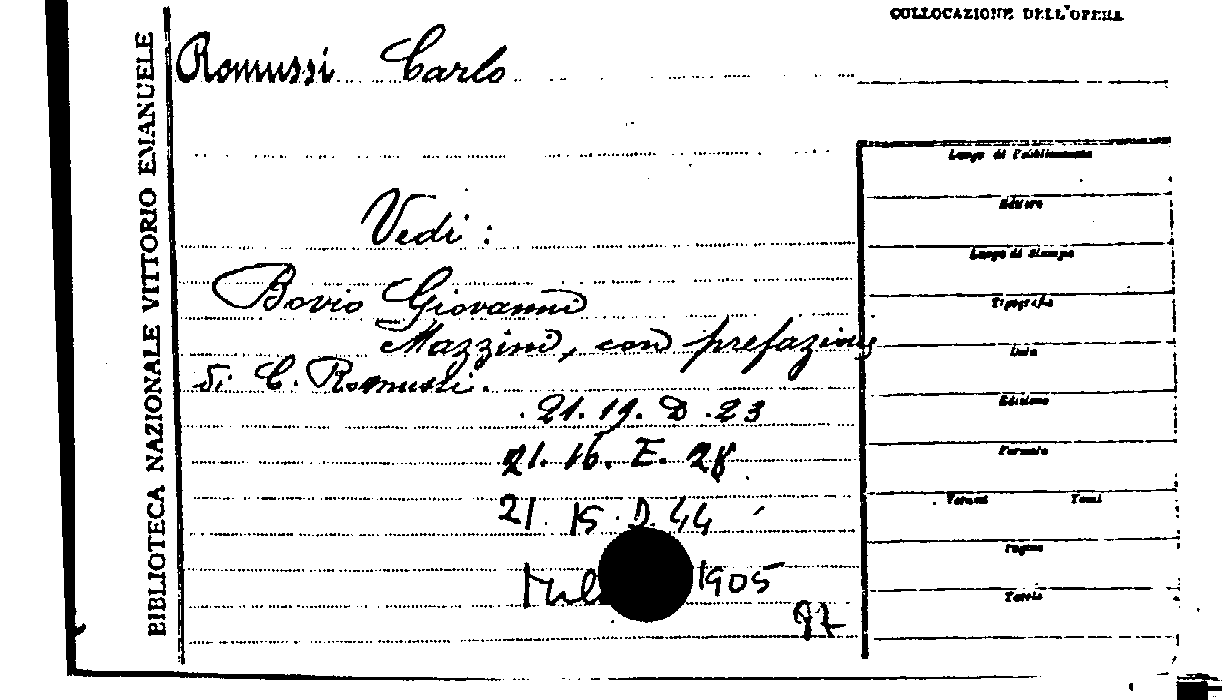 COLLOCAZIONE DELL'OPERA
BIBLIOTECA NAZIONALE VITTORIO EMANUELE
Romussi Carlo
Vedi:
Bovio Giovanni
Mazzini, con prefazione
di C. Romussi.
21.19.D.23
21.16.E.28
21.15.D.44
Mil 1905
97
Luogo di Pubblicazione
Editore
Luogo di stampa
Tipografia
Data
Edizione
Formato
Volumi Tomi
Pagine
Tavole